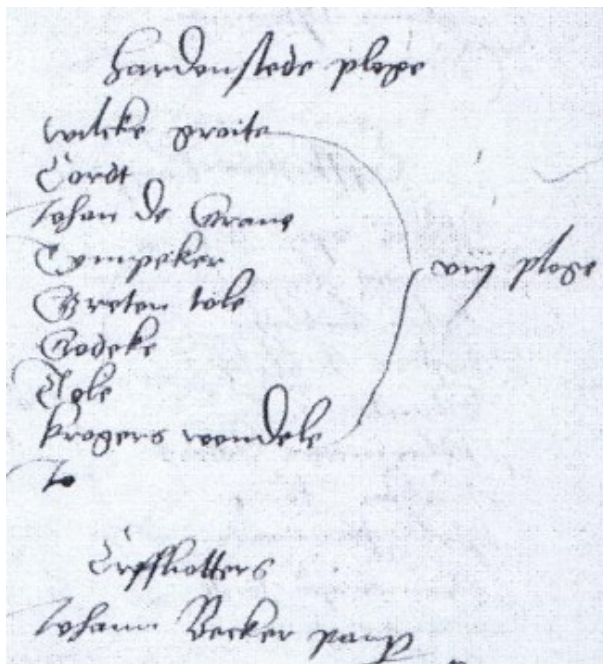 Hardenstede ploge
wilcke groite
Cordt
Johan de Grave
Tympeker
Greten tole
Godeke
Tole
krogers wendele
viij ploge
To
Erffkotters
Johann Becker paup